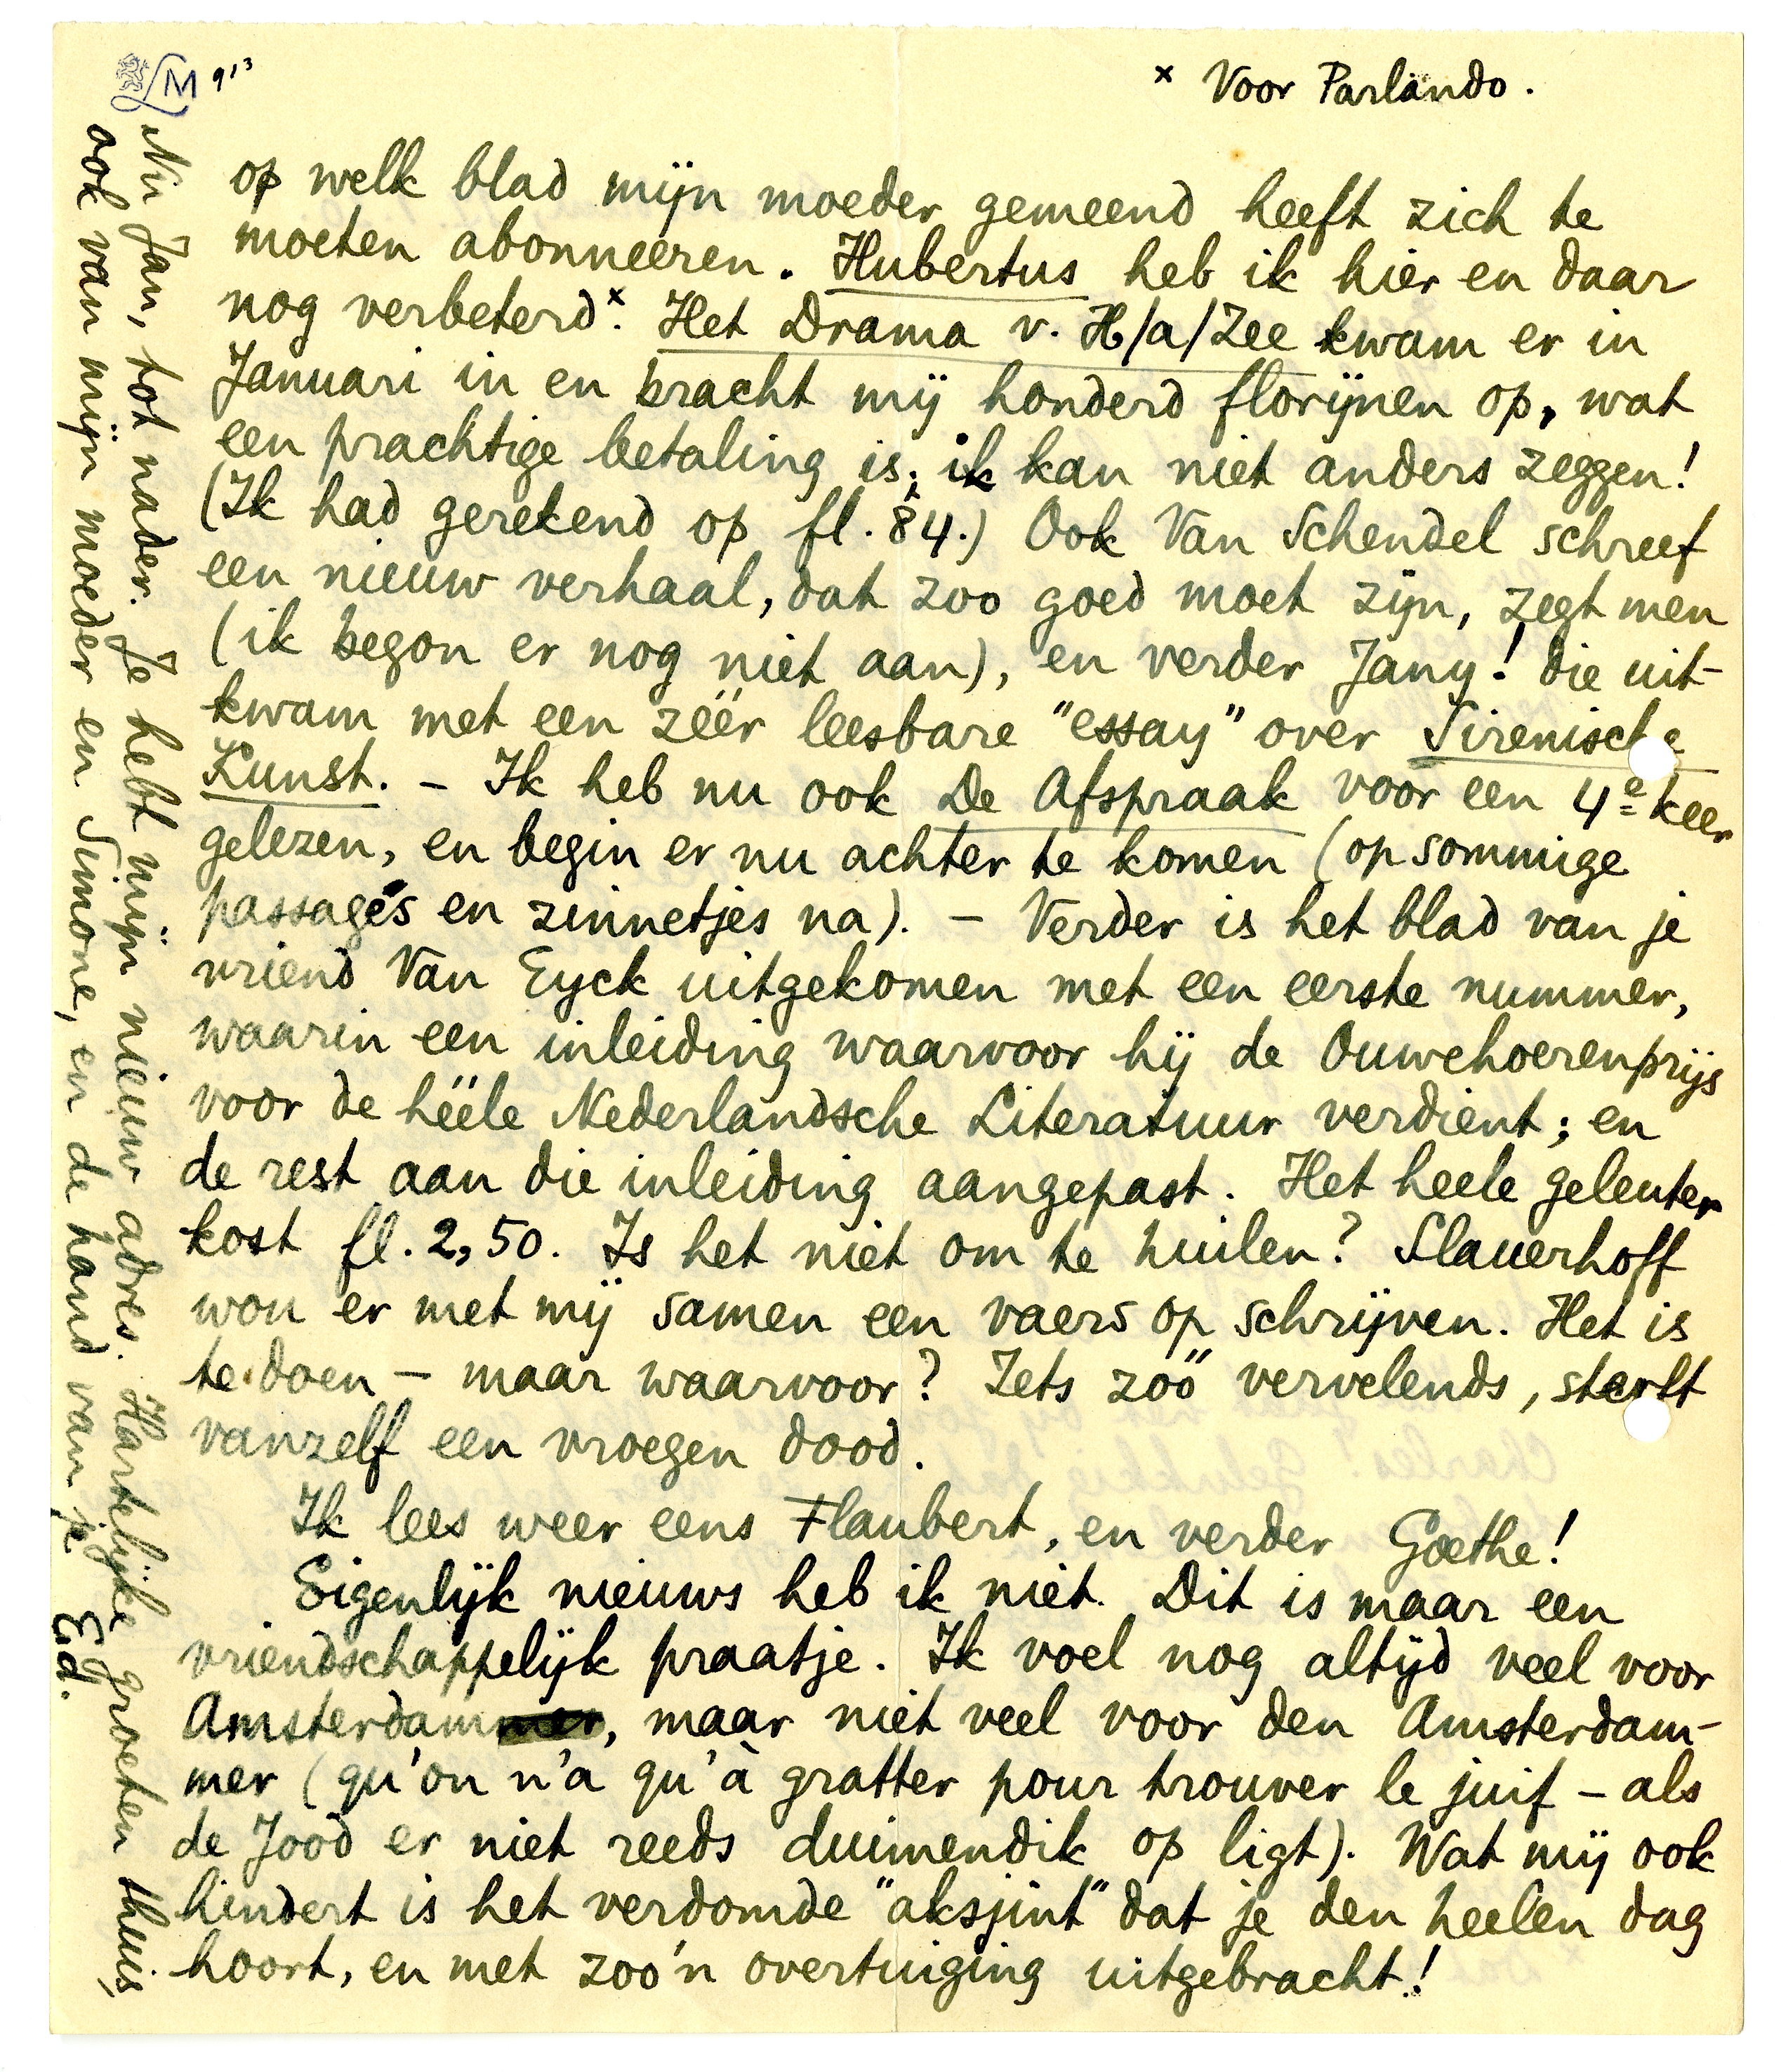 LM 913
x Voor Parlando.
op welk blad mijn moeder gemeend heeft zich te
moeten abonneeren. Hubertus heb ik hier en daar
nog verbeterd x. Het Drama v. H/a/Zee kwam er in
Januari in en bracht mij honderd florijnen op, wat
een prachtige betaling is; ik kan niet anders zeggen!
(Ik had gerekend op fl. 84.) Ook Van Schendel schreef
een nieuw verhaal, dat zoo goed moet zijn, zegt men
(ik begon er nog niet aan), en verder Jany! die uit-
kwam met een zéér leesbare "essay" over Sirenische
Kunst. - Ik heb nu ook De Afspraak voor een 4e keer
gelezen, en begin er nu achter te komen (op sommige
passages en zinnetjes na). - Verder is het blad van je
vriend Van Eyck uitgekomen met een eerste nummer,
waarin een inleiding waarvoor hij de Ouwehoerenprijs
voor de hééle Nederlandsche Literatuur verdient; en
de rest aan die inleiding aangepast. Het heele geleuter
kost fl. 2,50. Is het niet om te huilen? Slauerhoff
wou er met mij samen een vaers op schrijven. Het is
te doen - maar waarvoor? Iets zóó vervelends, sterft
vanzelf een vroegen dood.
Ik lees weer eens Flaubert, en verder Goethe!
Eigenlijk nieuws heb ik niet. Dit is maar een
vriendschappelijk praatje. Ik voel nog altijd veel voor
Amsterdam, maar niet veel voor den Amsterdam-
mer (qu'on n'a qu'à gratter pour trouver le juif - als
de Jood er niet reeds duimendik op ligt). Wat mij ook
hindert is het verdomde "aksjint" dat je den heelen dag
hoort, en met zoo'n overtuiging uitgebracht!
Nu Jan, tot nader. Je hebt mijn nieuw adres. Hartelijke groeten thuis,
ook van mijn moeder en Simone, en de hand van je
Ed.